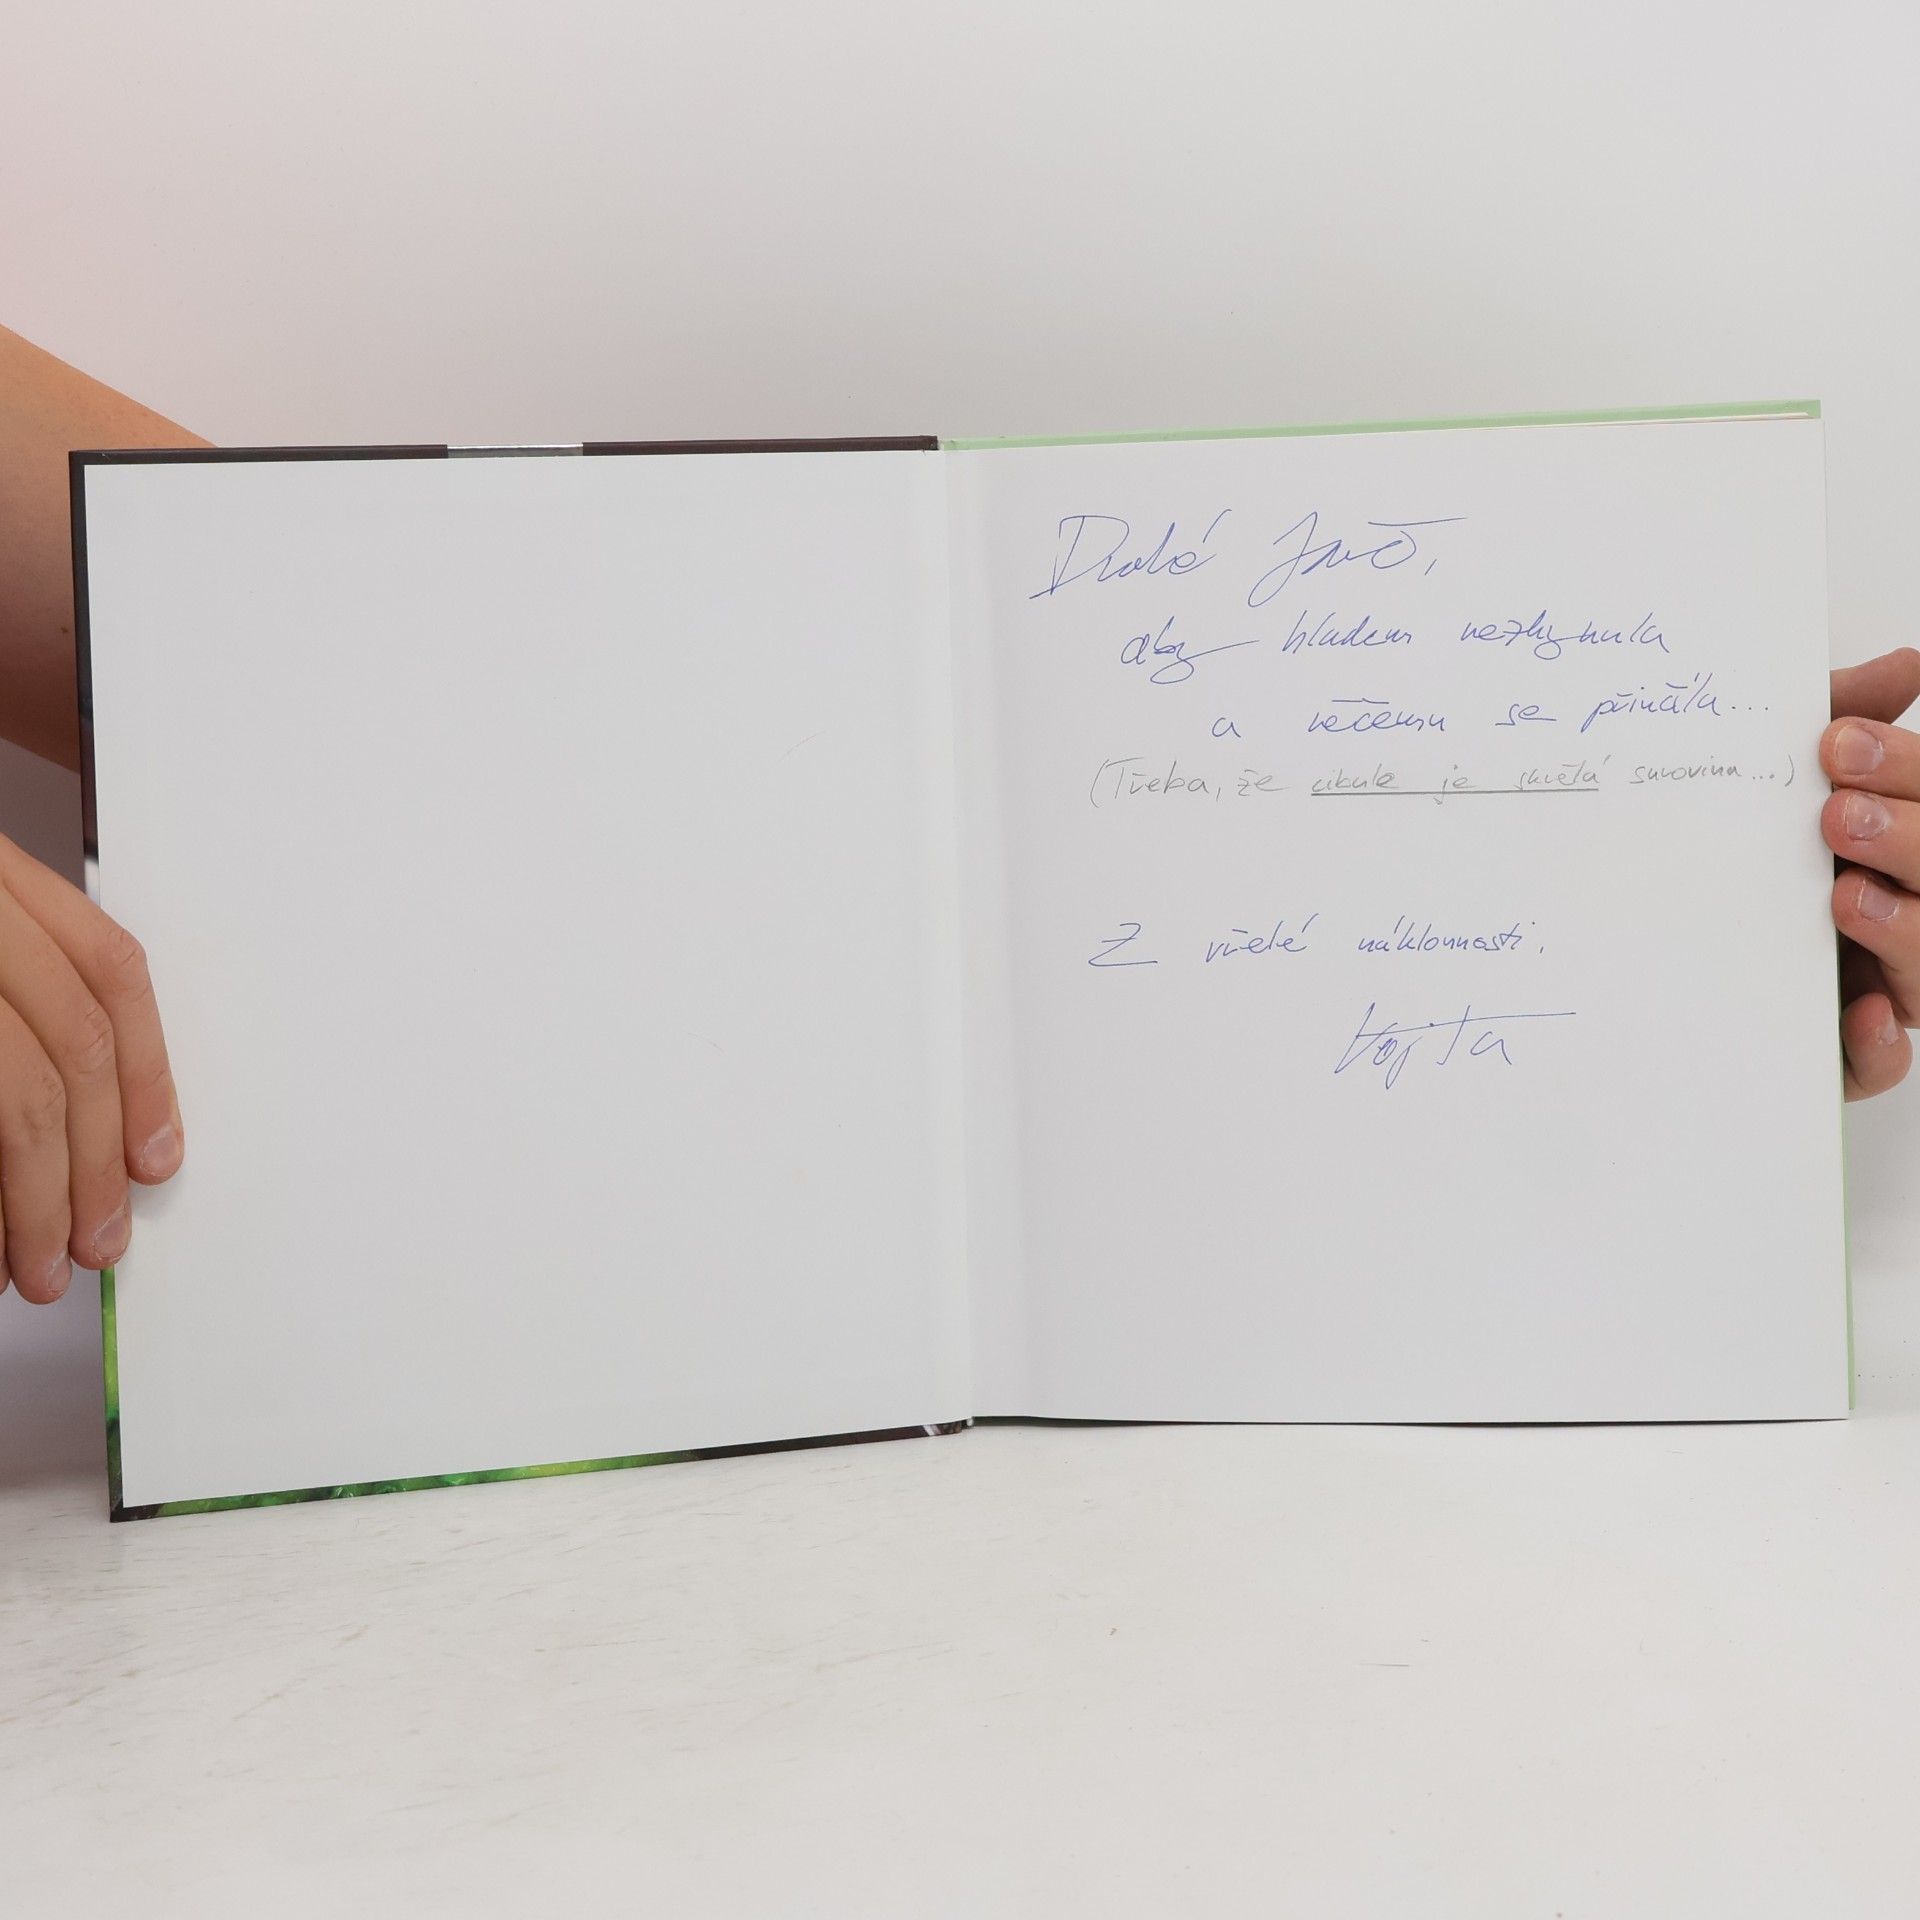 Drahé Janě,
aby hladem nezhynula
a něčemu se přiučila...
(Třeba, že cibule je skvělá surovina...)
Z vřelé náklonnosti,
Vojta